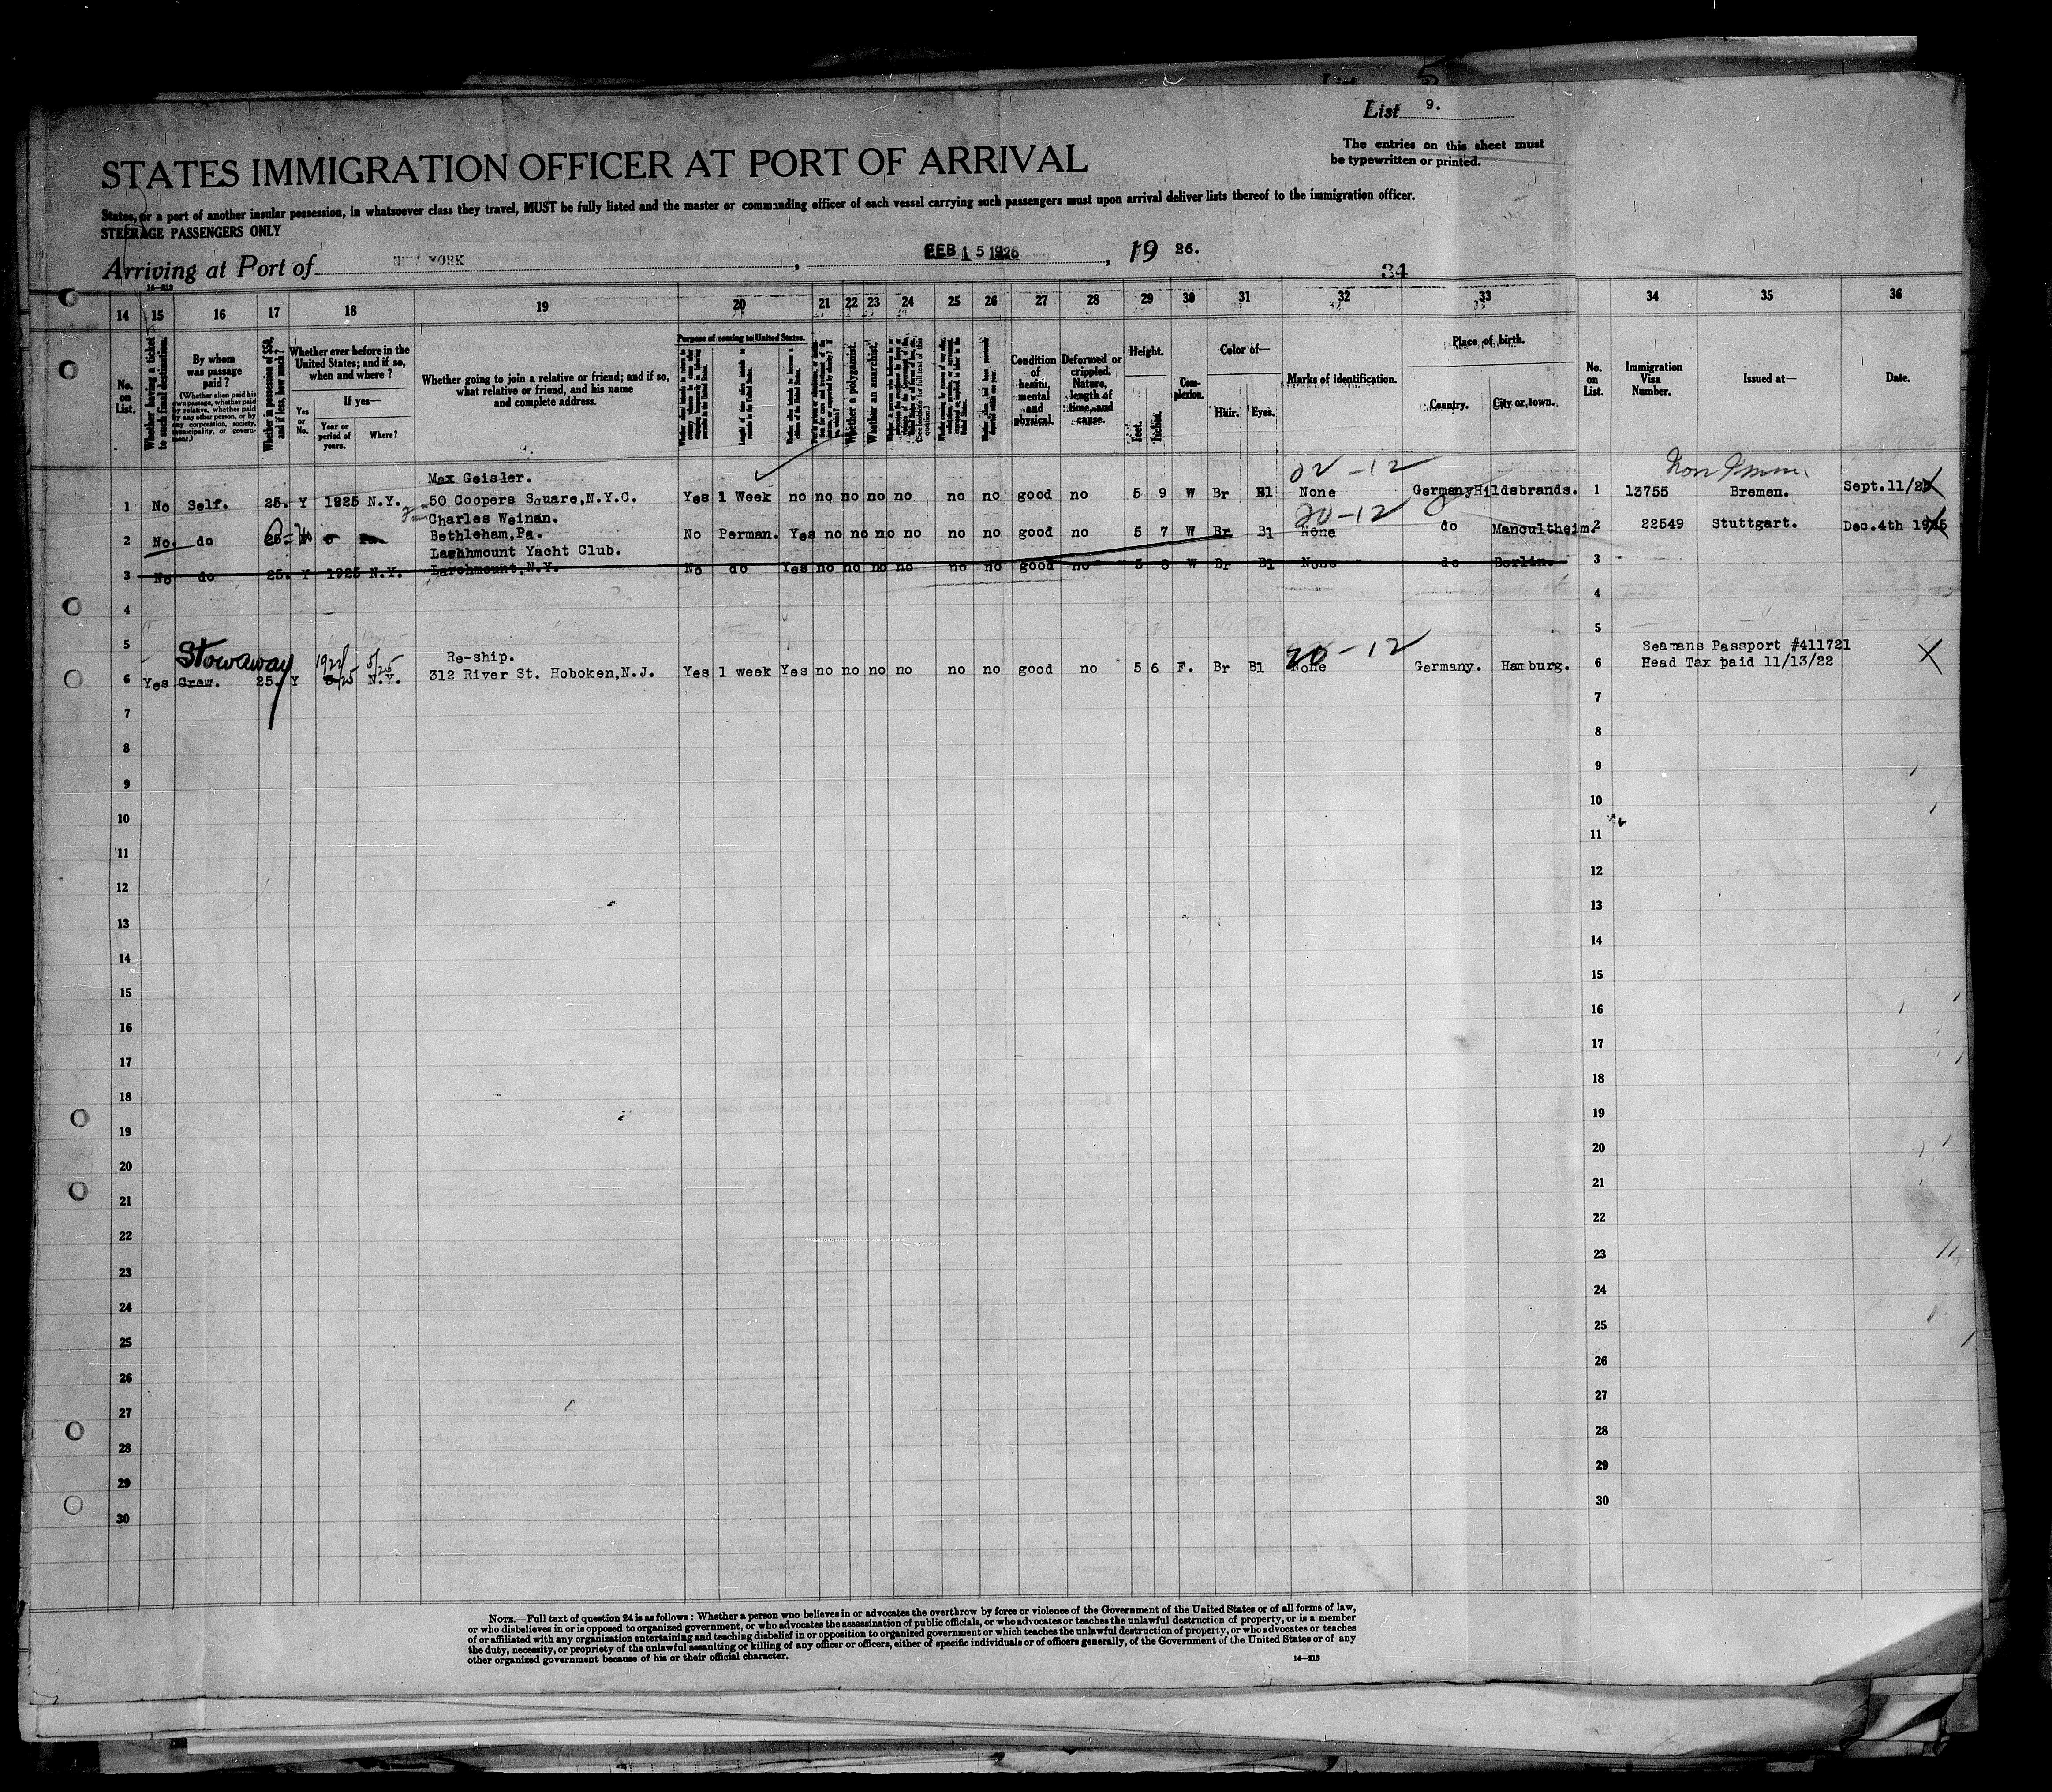 List 5
List 9.
The entries on this sheet must
be typewritten or printed.
STATES IMMIGRATION OFFICER AT PORT OF ARRIVAL
States, or a port of another insular possession, in whatsoever class they travel, MUST be fully listed and the master or commanding officer of each vessel carrying such passengers must upon arrival deliver lists thereof to the immigration officer.
STEERAGE PASSENGERS ONLY
Arriving at Port of NEW YORK, FEB 15 1926, 19 26.
34
14—213
14 15 16 17 18 19 20 21 22 23 24 25 26 27 28 29 30 31 32 33 34 35 36
No. on List.
Whether having a ticket to such final destination.
By whom was passage paid?
(Whether alien paid his own passage, whether paid by relative, whether paid by any other person, or by any corporation, society, municipality, or government.)
Whether in possession of $50, and if less, how much?
Whether ever before in the United States; and if so, when and where?
If yes—
Yes or No.
Year or period of years.
Where?
Whether going to join a relative or friend; and if so, what relative or friend, and his name and complete address.
Purpose of coming to United States.
Whether a polygamist.
Whether an anarchist.
Condition of health, mental and physical.
Deformed or crippled. Nature, length of time, and cause.
Height.
Feet.
Inches.
Complexion.
Color of—
Hair.
Eyes.
Marks of identification.
Place of birth.
Country.
City or town.
No. on List.
Immigration Visa Number.
Issued at—
Date.
Max Geisler. 02-12 Non Imm
1 No Self. 25. Y 1925 N.Y. 50 Coopers Square, N.Y.C. Yes 1 Week no no no no no no no good no 5 9 W Br Bl None Germany Hildsbrands. 1 13755 Bremen. Sept.11/25
Charles Weinan. 20-12
2 No. do 25 Bethleham, Pa. No Perman. Yes no no no no no no good no 5 7 W Br Bl None do Mancultheim. 2 22549 Stuttgart. Dec.4th 1925
Larchmount Yacht Club.
3 No do 25. Y 1925 N.Y. Larchmount, N.Y. No do Yes no no no no no no good no 5 8 W Br Bl None do Berlin. 3
4 4
5 5
Stowaway 1922/ 5/25 Re-ship. 20-12 Seamans Passport #411721
6 Yes Graw. 25. Y N.Y. 312 River St. Hoboken, N.J. Yes 1 week Yes no no no no no no good no 5 6 F. Br Bl None Germany. Hamburg. 6 Head Tax paid 11/13/22
7 7
8 8
9 9
10 10
11 11
12 12
13 13
14 14
15 15
16 16
17 17
18 18
19 19
20 20
21 21
22 22
23 23
24 24
25 25
26 26
27 27
28 28
29 29
30 30
NOTE.—Full text of question 24 is as follows: Whether a person who believes in or advocates the overthrow by force or violence of the Government of the United States or of all forms of law,
or who disbelieves in or is opposed to organized government, or who advocates the assassination of public officials, or who advocates or teaches the unlawful destruction of property, or is a member
of or affiliated with any organization entertaining and teaching disbelief in or opposition to organized government or which teaches the unlawful destruction of property, or who advocates or teaches
the duty, necessity, or propriety of the unlawful assaulting or killing of any officer or officers, either of specific individuals or of officers generally, of the Government of the United States or of any
other organized government because of his or their official character.
14—213